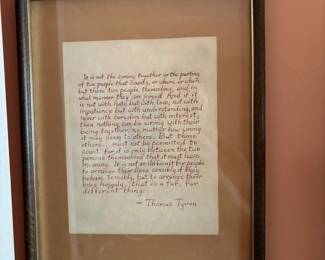 It is not the coming together or the parting
of two people that counts, or where or when
but those two people themselves, and in
what manner they are joined. And if it
is not with hate but with love, not with
impatience but with understanding, and
never with boredom but with interest,
then nothing can be wrong with their
being together, no matter how wrong
it may seem to others. But those
others... must not be permitted to
count for it is only between the two
persons themselves that it must have
meaning. It is not so difficult for people
to arrange their lives sensibly if they
behave sensibly, but to arrange their
lives happily, that is a far, far
different thing.
— Thomas Tyron